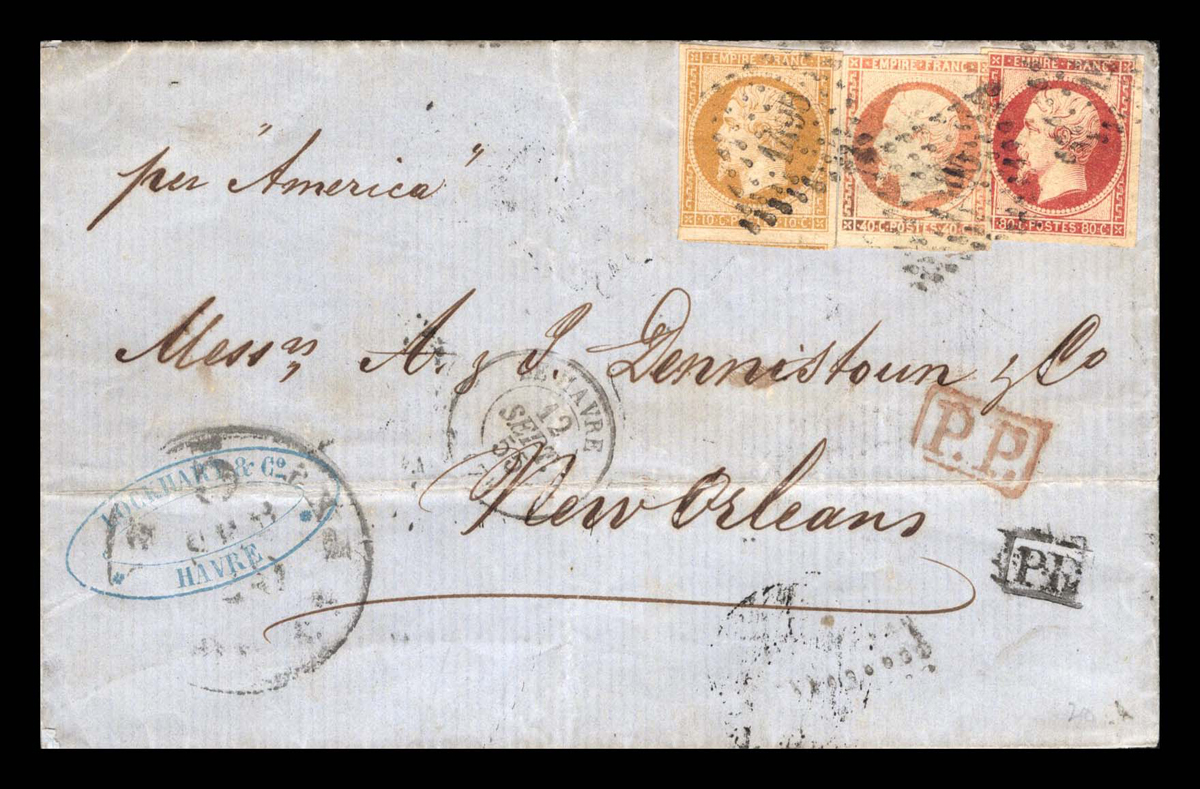 EMPIRE FRANC
10·C· 10·C
EMPIRE·FRANC·
40·C·POSTES·40·C
EMPIRE·FRANC·
80·C·POSTES·80·C
1495
per "America"
Messrs A. & J. Dennistoun & Co
New Orleans
LE HAVRE
12
SEPT
55
P.P.
LOCKHART & Co.
HAVRE